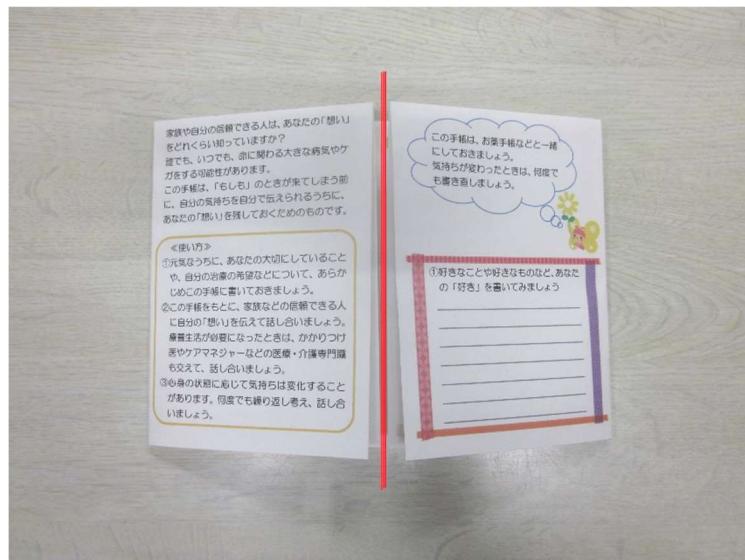 家族や自分の信頼できる人は、あなたの「想い」
をどれくらい知っていますか？
誰でも、いつでも、命に関わる大きな病気やケ
ガをする可能性があります。
この手帳は、「もしも」のときが来てしまう前
に、自分の気持ちを自分で伝えられるうちに、
あなたの「想い」を残しておくためのものです。
≪使い方≫
①元気なうちに、あなたの大切にしていること
や、自分の治療の希望などについて、あらか
じめこの手帳に書いておきましょう。
②この手帳をもとに、家族などの信頼できる人
に自分の「想い」を伝えて話し合いましょう。
療養生活が必要になったときは、かかりつけ
医やケアマネジャーなどの医療・介護専門職
も交えて、話し合いましょう。
③心身の状態に応じて気持ちは変化すること
があります。何度でも繰り返し考え、話し合
いましょう。
この手帳は、お薬手帳などと一緒
にしておきましょう。
気持ちが変わったときは、何度で
も書き直しましょう。
①好きなことや好きなものなど、あなた
の「好き」を書いてみましょう